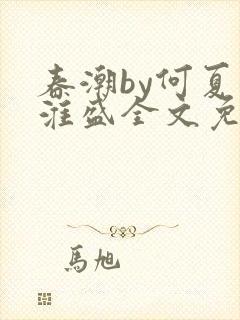 春潮by何夏
淮盛全文免
馬旭